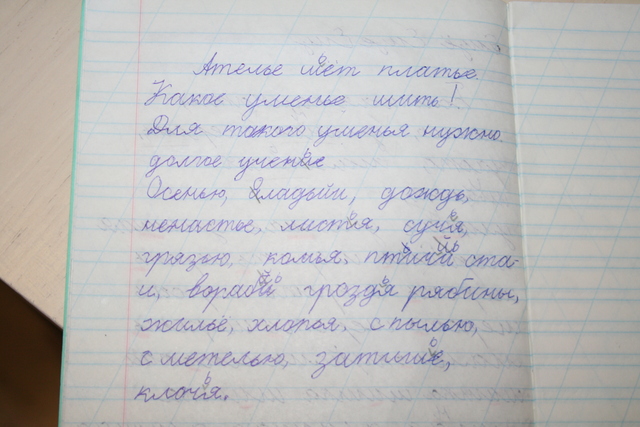 Ателье шьёт платье.
Какое уменье шить!
Для такого уменья нужно
долгое ученье
Осенью, оладьи, дождь,
ненастье, листья, сучья,
грязью, комья, птичьи ста-
и, воробьи гроздья рябины,
жильё, хлопья, с пылью,
с метелью, затишье,
клочья.